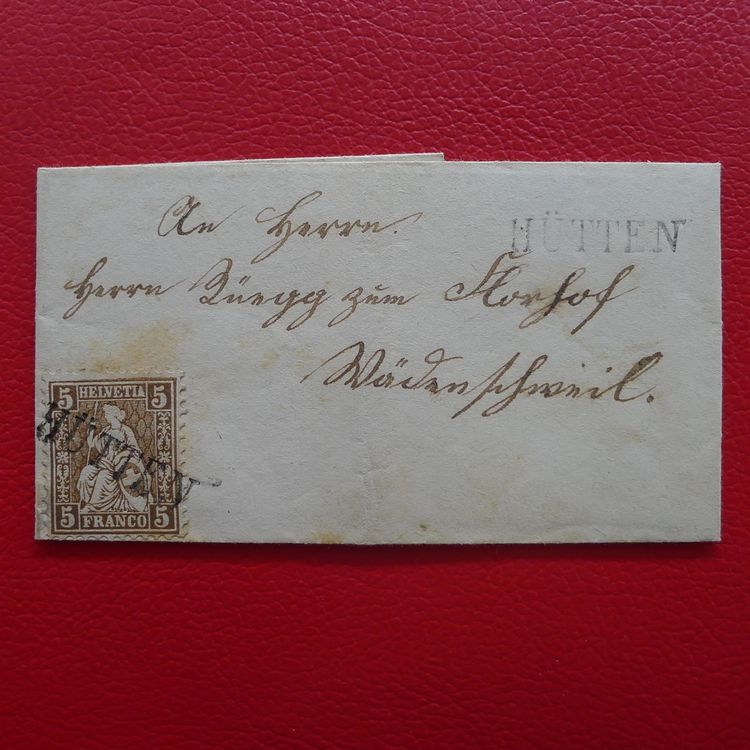 An Herrn.
HÜTTEN
Herrn Rüegg zum Florhof
Wädenschweil.
5 HELVETIA 5
HÜTTEN
5 FRANCO 5